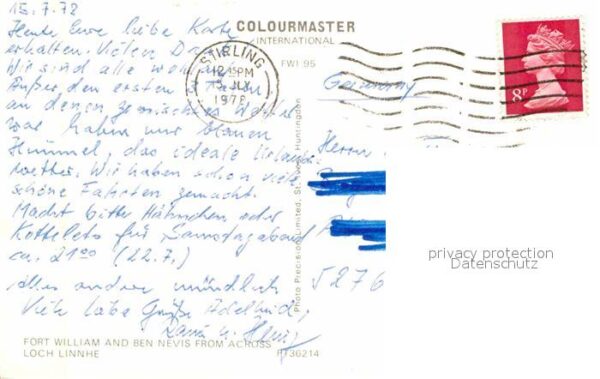 15.7.78
Heute Eure liebe Karte
erhalten. Vielen
Wir sind alle
Außer den ersten
an denen gemischtes
war haben wir blauen
Himmel, das ideale Urlaubs-
wetter. Wir haben schon viele
schöne Fahrten gemacht.
Macht bitte Hähnchen oder
Koteletts für Samstagabend
ca. 21°° (22.7.)
Alles andere mündlich
Viele liebe Grüße Adelheid,
u. Heinz
COLOURMASTER
INTERNATIONAL
FWI 95
STIRLING
12 15PM
15 JLY
1978
8P
Germany
Herrn
5276
privacy protection
Datenschutz
Photo Precision Limited, St. Ives, Huntingdon
FORT WILLIAM AND BEN NEVIS FROM ACROSS
LOCH LINNHE
PT36214